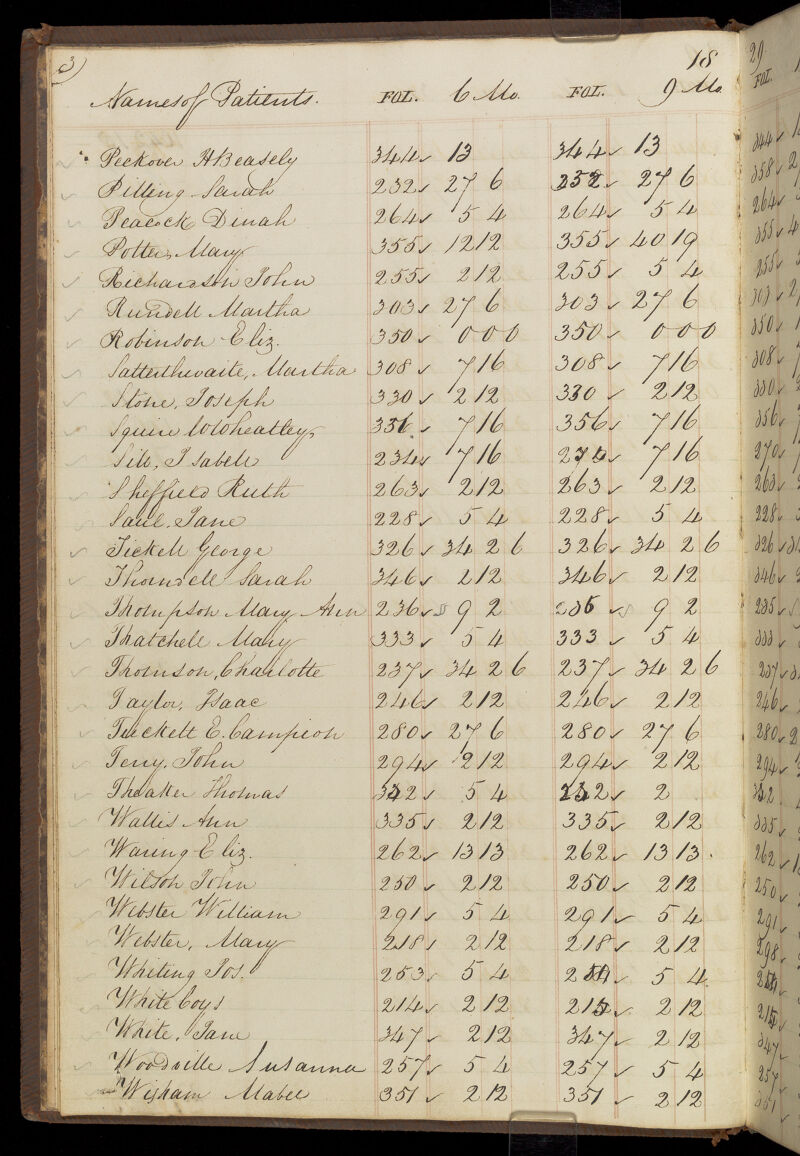 3) 18
Names of Patients. FOL. 6 Mo. FOL. 9 Mo.
Peckover H Beasely 344 13 344 13
Pilling Sarah 232 27 6 252 27 6
Peacock Dinah 264 5 4 264 5 4
Potter, Mary 355 12 12 355 40 19
Richardson John 255 2 12 255 5 4
Rundell Martha 303 27 6 303 27 6
Robinson Eliz. 350 0 0 0 350 0 0 0
Satterthwaite, Martha 308 7 16 308 7 16
Stone, Joseph 330 2 12 330 2 12
Squire Wheatley 356 7 16 356 7 16
Sill, Isabell 234 7 16 270 7 16
Sheffield Ruth 263 2 12 263 2 12
Saul, Jane 228 5 4 228 5 4
Tickell George 326 34 2 6 326 34 2 6
Thorndell Sarah 346 2 12 346 2 12
Thompson Mary Ann 236 8 9 2 235 8 9 2
Thatchell Mary 333 5 4 333 5 4
Thomson, Charlotte 237 34 2 6 237 34 2 6
Taylor, Isaac 246 2 12 246 2 12
Tuckett E. Campion 280 27 6 280 27 6
Terry, John 294 2 12 294 2 12
Theaker Thomas 332 5 4 332 2
Wallis Ann 335 2 12 335 2 12
Waring Eliz. 262 13 13 262 13 13.
Wilson John 250 2 12 250 2 12
Webster William 291 5 4 291 5 4
Webster, Mary 218 2 12 218 2 12
Whiting Jos. 253 5 4 5 4
White Coys 214 2 12 215 2 12
White, Jane 347 2 12 347 2 12
Woodville Susanna 257 5 4 257 5 4
Wigham Mabel 351 2 12 351 2 12
29
FOL.
344
358
264
355
255
303
350
308
330
356
270
263
228
326
346
235
333
237
246
280
294
332
335
262
250
291
298
215
347
257
351